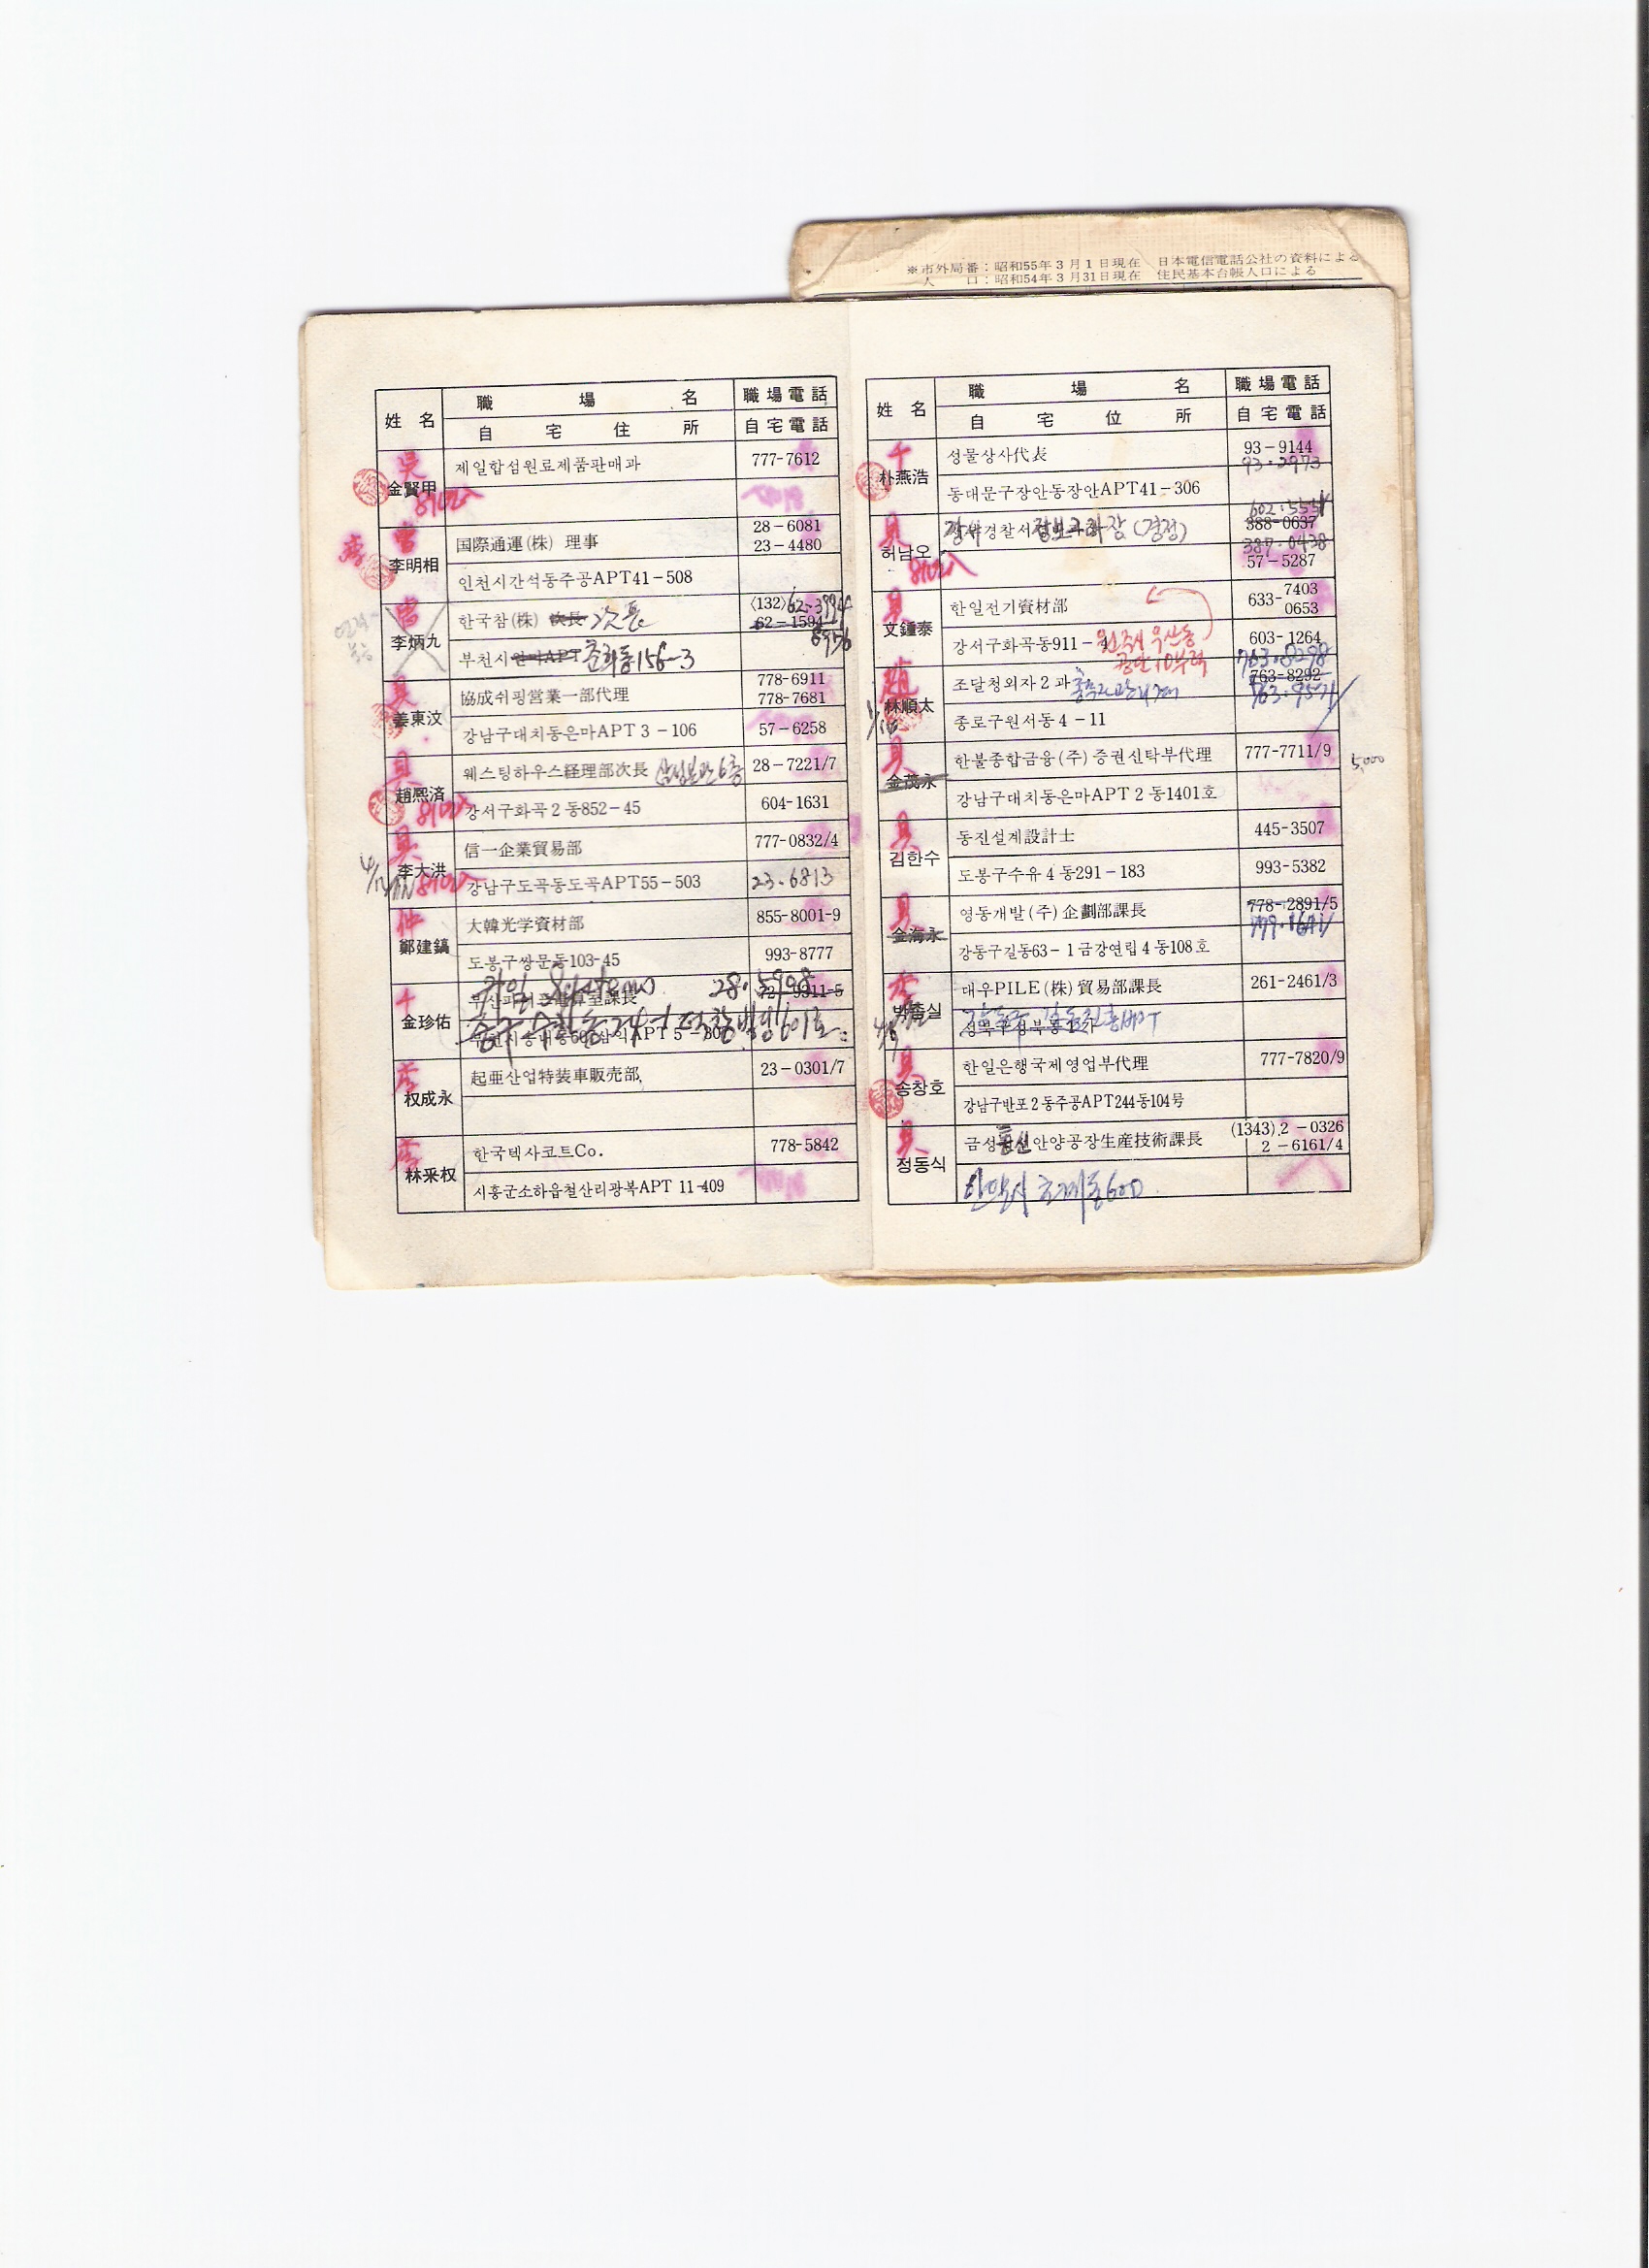 ※市外局番：昭和55年3月1日現在 日本電信電話公社の資料による
人 口：昭和54年3月31日現在 住民基本台帳人口による
姓 名 職 場 名 職場電話
自 宅 住 所 自宅電話
金賢甲 제일합섬원료제품판매과 777-7612
李明相 国際通運(株) 理事 28-6081
23-4480
인천시간석동주공APT41-508
李炳九 한국참(株) 次長 〈132〉62-3994
62-1594
부천시 춘의동156-3
姜東汶 協成쉬핑営業一部代理 778-6911
778-7681
강남구대치동은마APT 3-106 57-6258
趙熙済 웨스팅하우스経理部次長 삼성본관6층 28-7221/7
강서구화곡2동852-45 604-1631
李大洪 信一企業貿易部 777-0832/4
강남구도곡동도곡APT55-503 23.6813
鄭建鎬 大韓光学資材部 855-8001-9
도봉구쌍문동103-45 993-8777
金珍佑 28.5908
权成永 起亜産업特装車販売部, 23-0301/7
林采权 한국텍사코트Co. 778-5842
시흥군소하읍철산리광복APT 11-409
姓 名 職 場 名 職場電話
自 宅 位 所 自宅電話
朴燕浩 성물상사代表 93-9144
93.2973
동대문구장안동장안APT41-306
허남오 경찰서정보과장(경정) 602.5551
388-0637
387.0438
57-5287
文鍾泰 한일전기資材部 633-7403
0653
강서구화곡동911-4 원주시 우산동 603-1264
林順太 조달청외자2과 763.8298
763-8292
763.9571
종로구원서동4-11
金茂永 한불종합금융(주)증권신탁부代理 777-7711/9
5,000
강남구대치동은마APT 2동1401호
김한수 동진설계設計士 445-3507
도봉구수유4동291-183 993-5382
金海永 영동개발(주)企劃部課長 778-2891/5
강동구길동63-1금강연립4동108호
대우PILE(株)貿易部課長 261-2461/3
송창호 한일은행국제영업부代理 777-7820/9
강남구반포2동주공APT244동104号
정동식 금성통신안양공장生産技術課長 (1343).2-0326
2-6161/4
안양시 호계동600